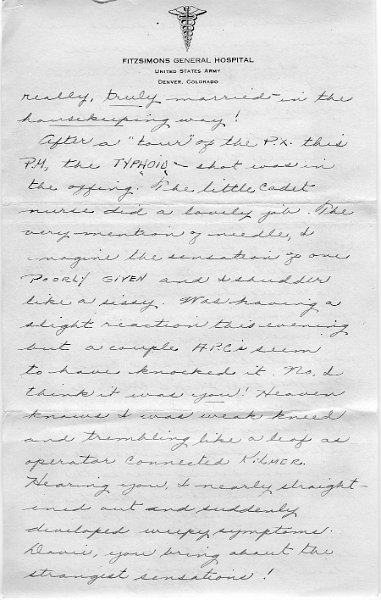 FITZSIMONS GENERAL HOSPITAL
UNITED STATES ARMY
DENVER, COLORADO
really, truly married - in the
housekeeping way!
After a "tour" of the P.X. this
P.M, the TYPHOID - shot was in
the offing. The little Cadet
nurse did a lovely job. The
very mention of needle, I
imagine the sensation of one
POORLY GIVEN and I shudder
like a sissy. Was having a
slight reaction this evening
but a couple APC's seem
to have knocked it. No, I
think it was you! Heaven
knows I was weak kneed
and trembling like a leaf as
operator connected KILMER.
Hearing you, I nearly straight-
ened out and suddenly
developed weepy symptoms.
Davie, you bring about the
strangest sensations!